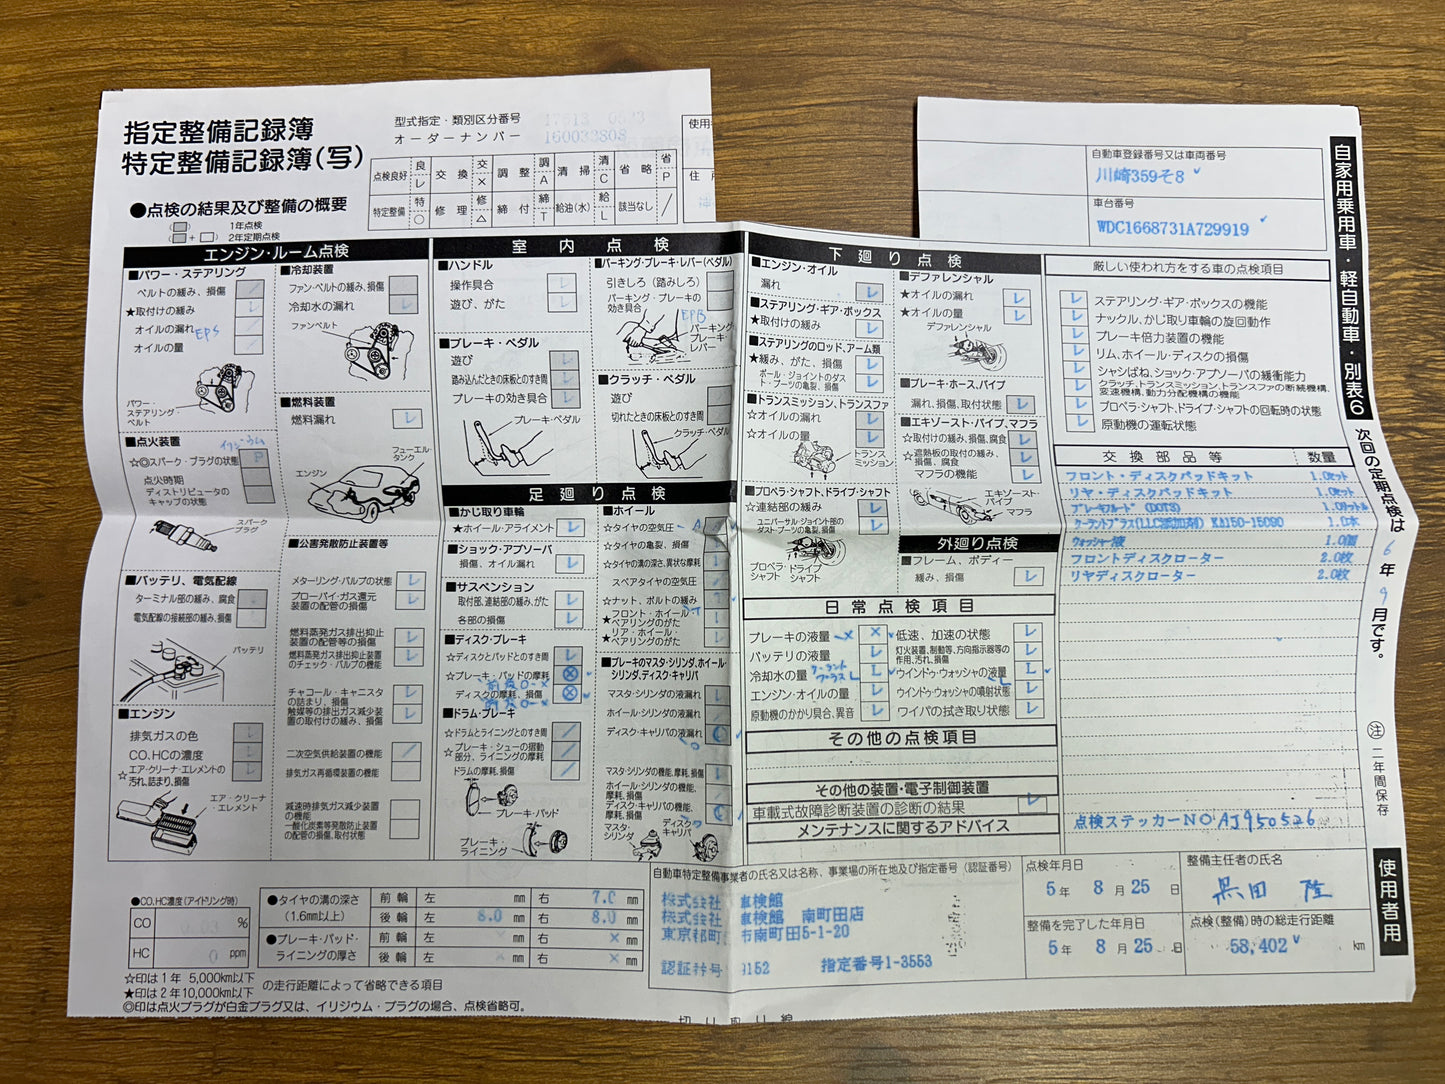 指定整備記録簿
特定整備記録簿(写)
型式指定・類別区分番号
オーダーナンバー 160033808
点検良好 良 レ 交換 交 × 調整 調 A 清掃 清 C 省略 省 P
特定整備 特 ○ 修理 修 △ 締付 締 T 給油(水) 給 L 該当なし /
使用
住
●点検の結果及び整備の概要
1年点検
+ 2年定期点検
エンジン・ルーム点検
■パワー・ステアリング
ベルトの緩み、損傷
★取付けの緩み
オイルの漏れ EPS
オイルの量
パワー・ステアリング・ベルト
■点火装置
イリジウム
☆◎スパーク・プラグの状態 P
点火時期
ディストリビュータのキャップの状態
スパークプラグ
■バッテリ、電気配線
ターミナル部の緩み、腐食
電気配線の接続部の緩み、損傷
バッテリ
■エンジン
排気ガスの色
CO、HCの濃度
☆エア・クリーナ・エレメントの汚れ、詰まり、損傷
エア・クリーナ・エレメント
■冷却装置
ファン・ベルトの緩み、損傷
冷却水の漏れ
ファンベルト
■燃料装置
燃料漏れ
フューエル・タンク
エンジン
■公害発散防止装置等
メターリング・バルブの状態
ブローバイ・ガス還元装置の配管の損傷
燃料蒸発ガス排出抑止装置の配管等の損傷
燃料蒸発ガス排出抑止装置のチェック・バルブの機能
チャコール・キャニスタの詰まり、損傷
触媒等の排出ガス減少装置の取付けの緩み、損傷
二次空気供給装置の機能
排気ガス再循環装置の機能
減速時排気ガス減少装置の機能
一酸化炭素等発散防止装置の配管の損傷、取付状態
室内点検
■ハンドル
操作具合
遊び、がた
■ブレーキ・ペダル
遊び
踏み込んだときの床板とのすき間
ブレーキの効き具合
ブレーキ・ペダル
■パーキング・ブレーキ・レバー(ペダル)
引きしろ(踏みしろ)
パーキング・ブレーキの効き具合
EPB
パーキング・ブレーキ・レバー
■クラッチ・ペダル
遊び
切れたときの床板とのすき間
クラッチ・ペダル
足廻り点検
■かじ取り車輪
★ホイール・アライメント
■ショック・アブソーバ
損傷、オイル漏れ
■サスペンション
取付部、連結部の緩み、がた
各部の損傷
■ディスク・ブレーキ
☆ディスクとパッドとのすき間
☆ブレーキ・パッドの摩耗
ディスクの摩耗、損傷
■ドラム・ブレーキ
☆ドラムとライニングとのすき間
☆ブレーキ・シューの摺動部分、ライニングの摩耗
ドラムの摩耗、損傷
ブレーキ・パッド
ブレーキ・ライニング
■ホイール
☆タイヤの空気圧
☆タイヤの亀裂、損傷
☆タイヤの溝の深さ、異状な摩耗
スペアタイヤの空気圧
☆ナット、ボルトの緩み
★フロント・ホイール・ベアリングのがた
★リア・ホイール・ベアリングのがた
■ブレーキのマスタ・シリンダ、ホイール・シリンダ、ディスク・キャリパ
マスタ・シリンダの液漏れ
ホイール・シリンダの液漏れ
ディスク・キャリパの液漏れ
マスタ・シリンダの機能、摩耗、損傷
ホイール・シリンダの機能、摩耗、損傷
ディスク・キャリパの機能、摩耗、損傷
マスタ・シリンダ
ディスク・キャリパ
下廻り点検
■エンジン・オイル
漏れ
■ステアリング・ギア・ボックス
★取付けの緩み
■ステアリングのロッド、アーム類
★緩み、がた、損傷
ボール・ジョイントのダスト・ブーツの亀裂、損傷
■トランスミッション、トランスファ
☆オイルの漏れ
☆オイルの量
トランスミッション
■プロペラ・シャフト、ドライブ・シャフト
☆連結部の緩み
ユニバーサル・ジョイント部のダスト・ブーツの亀裂、損傷
プロペラ・シャフト
ドライブ・シャフト
■デファレンシャル
★オイルの漏れ
★オイルの量
デファレンシャル
■ブレーキ・ホース、パイプ
漏れ、損傷、取付状態
■エキゾースト・パイプ、マフラ
☆取付けの緩み、損傷、腐食
☆遮熱板の取付の緩み、損傷、腐食
マフラの機能
エキゾースト・パイプ
マフラ
外廻り点検
■フレーム、ボディー
緩み、損傷
日常点検項目
ブレーキの液量
バッテリの液量
冷却水の量 クーラントプラスL
エンジン・オイルの量
原動機のかかり具合、異音
低速、加速の状態
灯火装置、制動等、方向指示器等の作用、汚れ、損傷
ウインドウ・ウォッシャの液量
ウインドウ・ウォッシャの噴射状態
ワイパの拭き取り状態
その他の点検項目
その他の装置・電子制御装置
車載式故障診断装置の診断の結果
メンテナンスに関するアドバイス
自動車登録番号又は車両番号
川崎359そ8
車台番号
WDC1668731A729919
厳しい使われ方をする車の点検項目
ステアリング・ギア・ボックスの機能
ナックル、かじ取り車輪の旋回動作
ブレーキ倍力装置の機能
リム、ホイール・ディスクの損傷
シャシばね、ショック・アブソーバの緩衝能力
クラッチ、トランスミッション、トランスファの断続機構、変速機構、動力分配機構の機能
プロペラ・シャフト、ドライブ・シャフトの回転時の状態
原動機の運転状態
交換部品等 数量
フロント・ディスクパッドキット 1.0セット
リヤ・ディスクパッドキット 1.0セット
ブレーキフルード (DOT3) 1.0リットル
クーラントプラス(LLC添加剤) KA150-15090 1.0本
ウォッシャー液 1.0個
フロントディスクローター 2.0枚
リヤディスクローター 2.0枚
点検ステッカーNO AJ950526
自家用乗用車・軽自動車・別表6
次回の定期点検は6年9月です。
㊟二年間保存
使用者用
●CO、HC濃度(アイドリング時)
CO %
HC 0 ppm
●タイヤの溝の深さ(1.6mm以上) 前輪 左 mm 右 7.0 mm
後輪 左 8.0 mm 右 8.0 mm
●ブレーキ・パッド・ライニングの厚さ 前輪 左 mm 右 × mm
後輪 左 mm 右 × mm
☆印は1年 5,000km以下
★印は2年10,000km以下 の走行距離によって省略できる項目
◎印は点火プラグが白金プラグ又は、イリジウム・プラグの場合、点検省略可。
自動車特定整備事業者の氏名又は名称、事業場の所在地及び指定番号(認証番号)
株式会社 車検館
株式会社 車検館 南町田店
東京都町 市南町田5-1-20
認証番号 9152 指定番号1-3553
点検年月日
5年 8月25日
整備を完了した年月日
5年 8月25日
整備主任者の氏名
黒田 隆
点検(整備)時の総走行距離
58,402 km
切り取り線